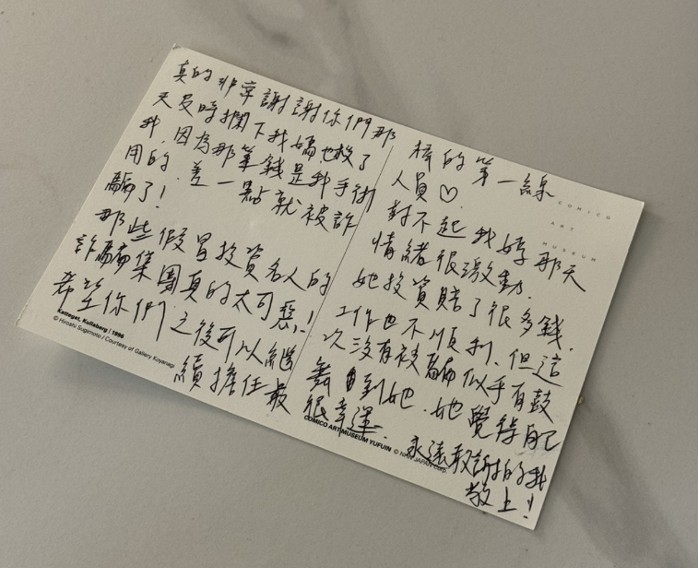 真的非常謝謝你們那
天及時攔下我媽也救了
我.因為那筆錢是我手術
用的.差一點就被詐
騙了!
那些假冒投資名人的
詐騙集團真的太可惡!
希望你們之後可以繼
續擔任最
棒的第一線
人員♡.
對不起我媽那天
情緒很激動.
她投資賠了很多錢.
工作也不順利.但這
次沒有被騙似乎有鼓
舞到她.她覺得自己
很幸運.
永遠敬謝的我
敬上!
Kattegat, Kullaberg / 1996
© Hiroshi Sugimoto / Courtesy of Gallery Koyanagi
COMICO
ART
MUSEUM
COMICO ART MUSEUM YUFUIN © NHN JAPAN Corp.